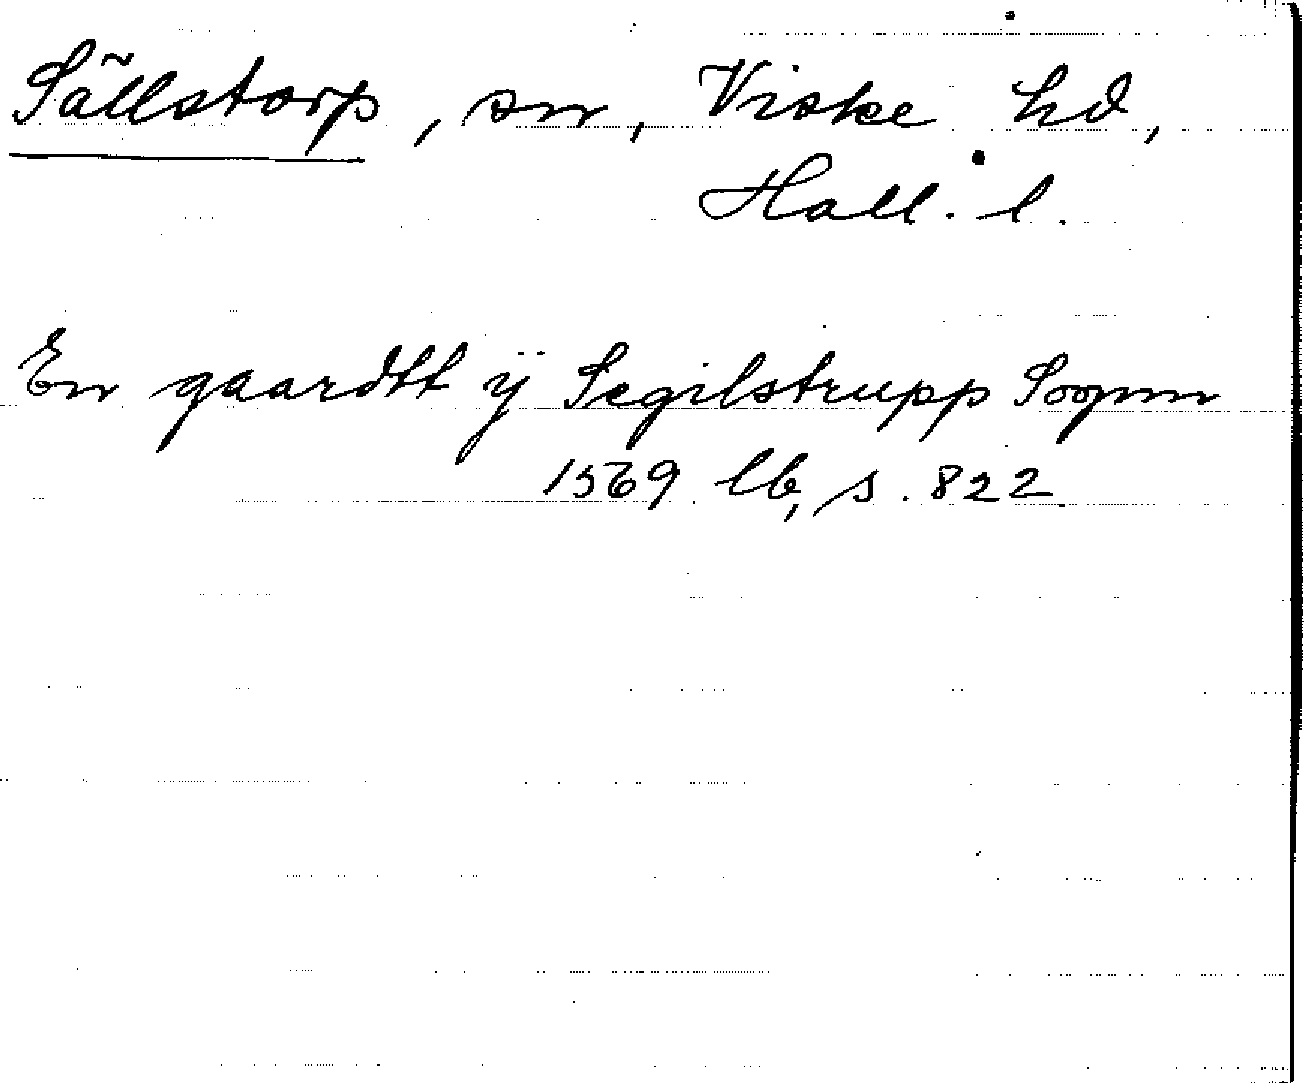 Sällstorp, sn, Viske hd,
Hall. l.
En gaardtt ÿ Segilstrupp Sognn
1569 lb, s. 822